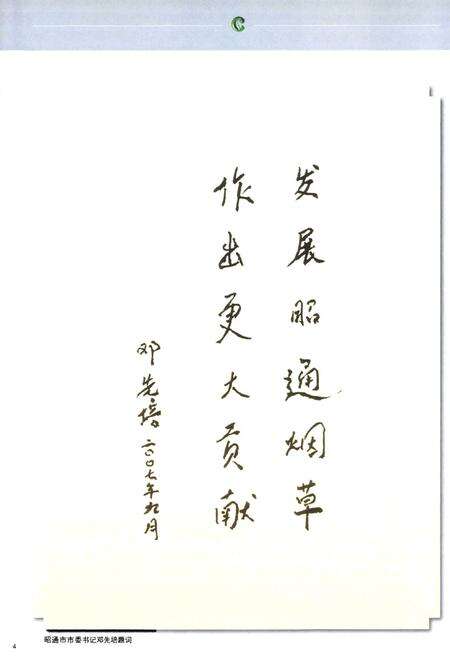 发展昭通烟草
作出更大贡献
邓先培二〇〇七年九月
昭通市市委书记邓先培题词
4